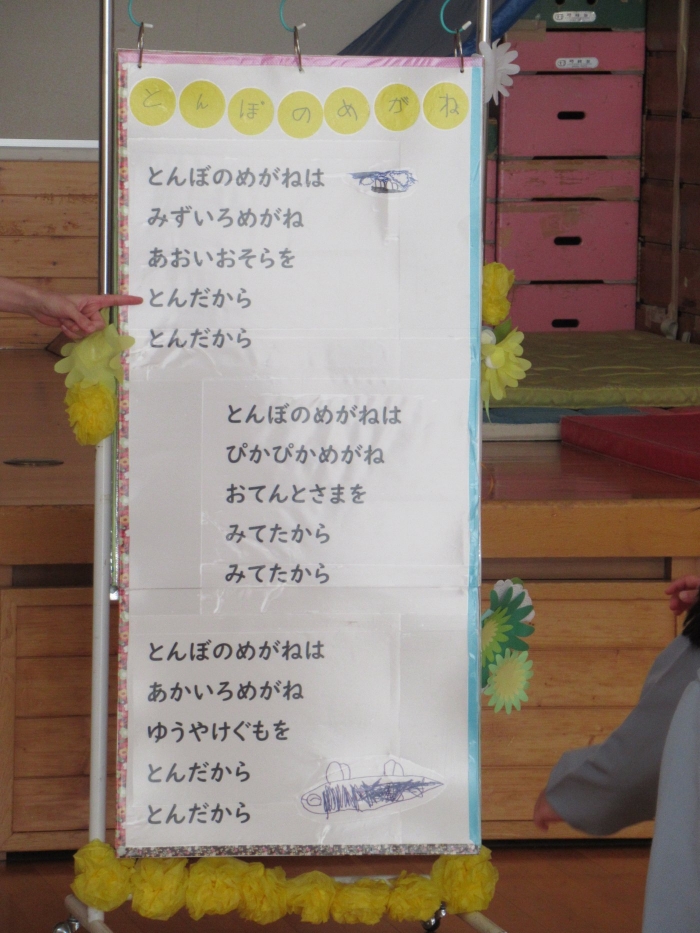 とんぼのめがね
とんぼのめがねは
みずいろめがね
あおいおそらを
とんだから
とんだから
とんぼのめがねは
ぴかぴかめがね
おてんとさまを
みてたから
みてたから
とんぼのめがねは
あかいろめがね
ゆうやけぐもを
とんだから
とんだから